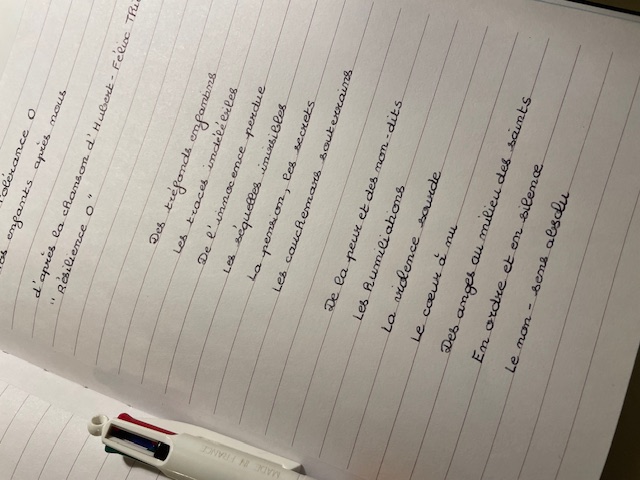 olérance 0
os enfants après nous
d'après la chanson d'Hubert-Félix Thié
"Résilience 0"
Des tréfonds enfantins
Les traces indélébiles
De l'innocence perdue
Les séquelles invisibles
La pension, les secrets
Les cauchemars souterrains
De la peur et des non-dits
Les humiliations
La violence sourde
Le cœur à nu
Des anges au milieu des saints
En ordre et en silence
Le non-sens absolu
MADE IN FRANCE